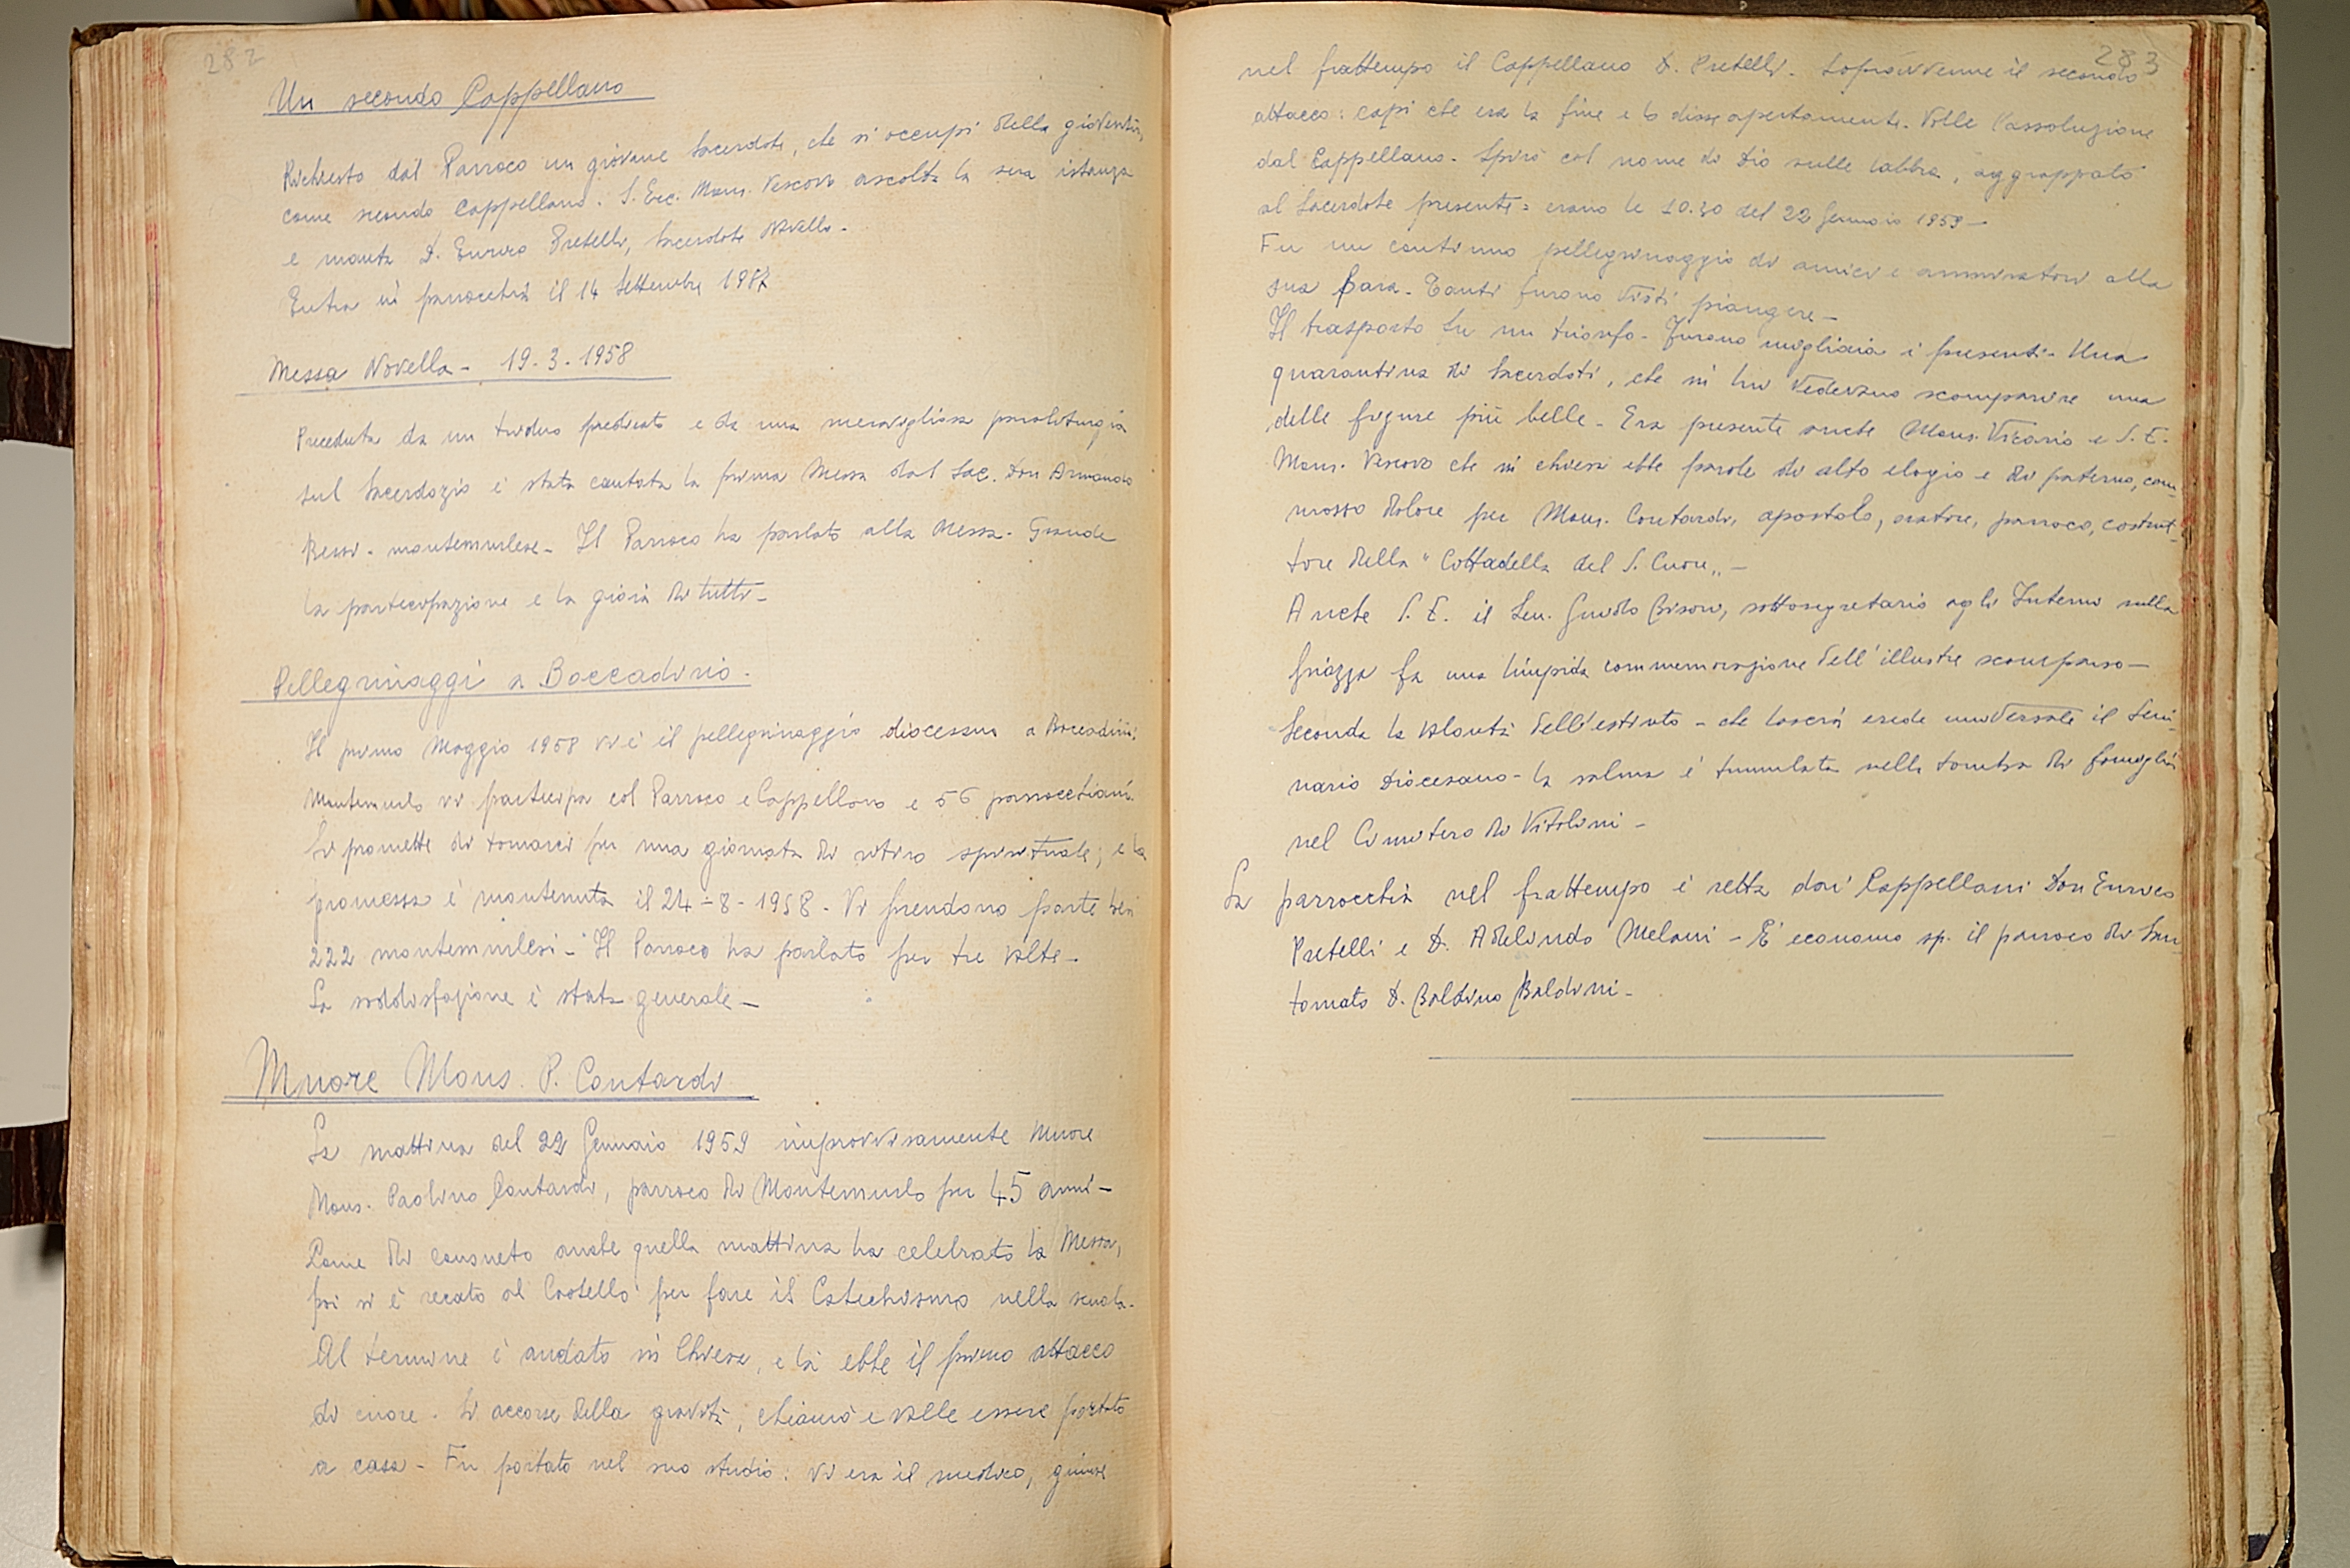 282
Un secondo Cappellano
Richiesto dal Parroco un giovane Sacerdote, che si occupi della gioventù,
come secondo Cappellano. S. Ecc. Mons. Vescovo ascolta la sua istanza
e manda D. Enrico Pretelli, Sacerdote Novello.
Entra in parrocchia il 14 Settembre 1957
Messa Novella - 19-3-1958
Preceduta da un triduo predicato e da una meravigliosa paraliturgia
sul Sacerdozio è stata cantata la prima Messa dal Sac. Don Armando
montemurlese - Il Parroco ha parlato alla Messa - Grande
la partecipazione e la gioia di tutti -
Pellegrinaggi a Boccadirio.
Il primo Maggio 1958 vi è il pellegrinaggio diocesano a Boccadirio.
Montemurlo vi partecipa col Parroco e Cappellano e 56 parrocchiani.
Si promette di tornarci per una giornata di ritiro spirituale; e la
promessa è mantenuta il 24-8-1958. Vi prendono parte ben
222 montemurlesi - Il Parroco ha parlato per tre volte -
La soddisfazione è stata generale -
Muore Mons. P. Contardi
La mattina del 22 Gennaio 1959 improvvisamente muore
Mons. Paolino Contardi, parroco di Montemurlo per 45 anni -
Come di consueto anche quella mattina ha celebrato la Messa,
poi si è recato al Castello per fare il Catechismo nella scuola.
Al termine è andato in Chiesa, e là ebbe il primo attacco
di cuore. Si accorse della gravità, chiamò e volle essere portato
a casa - Fu portato nel suo studio: vi era il medico, giunse
283
nel frattempo il Cappellano D. Pretelli. Sopravvenne il secondo
attacco: capì che era la fine e lo disse apertamente. Volle l'assoluzione
dal Cappellano. Spirò col nome di Dio sulle labbra, aggrappato
al Sacerdote presente: erano le 10.30 del 22 Gennaio 1959 -
Fu un continuo pellegrinaggio di amici e ammiratori alla
sua Bara. Tanti furono visti piangere -
Il trasporto fu un trionfo - Furono migliaia i presenti - Una
quarantina di Sacerdoti, che in lui vedevano scomparire una
delle figure più belle - Era presente anche Mons. Vicario e S. E.
Mons. Vescovo che in chiesa ebbe parole di alto elogio e di paterno, com-
mosso dolore per Mons. Contardi, apostolo, oratore, parroco, costrut-
tore della "Cittadella del S. Cuore" -
Anche S. E. il Sen. Guido Bisori, sottosegretario agli Interni sulla
piazza fa una limpida commemorazione dell'illustre scomparso -
Seconda la volontà dell'estinto - che lascia erede universale il Semi-
nario Diocesano - la salma è tumulata nella tomba di famiglia
nel Cimitero di Vitolini -
La parrocchia nel frattempo è retta dai Cappellani Don Enrico
Pretelli e D. Adelindo Melani - È economo sp. il parroco di San-
tomato D. Baldino Baldini -